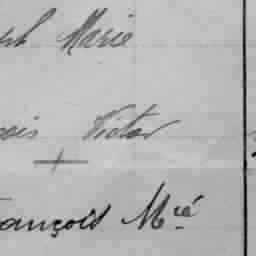 ph Marie
çois Victor
rançois Mié